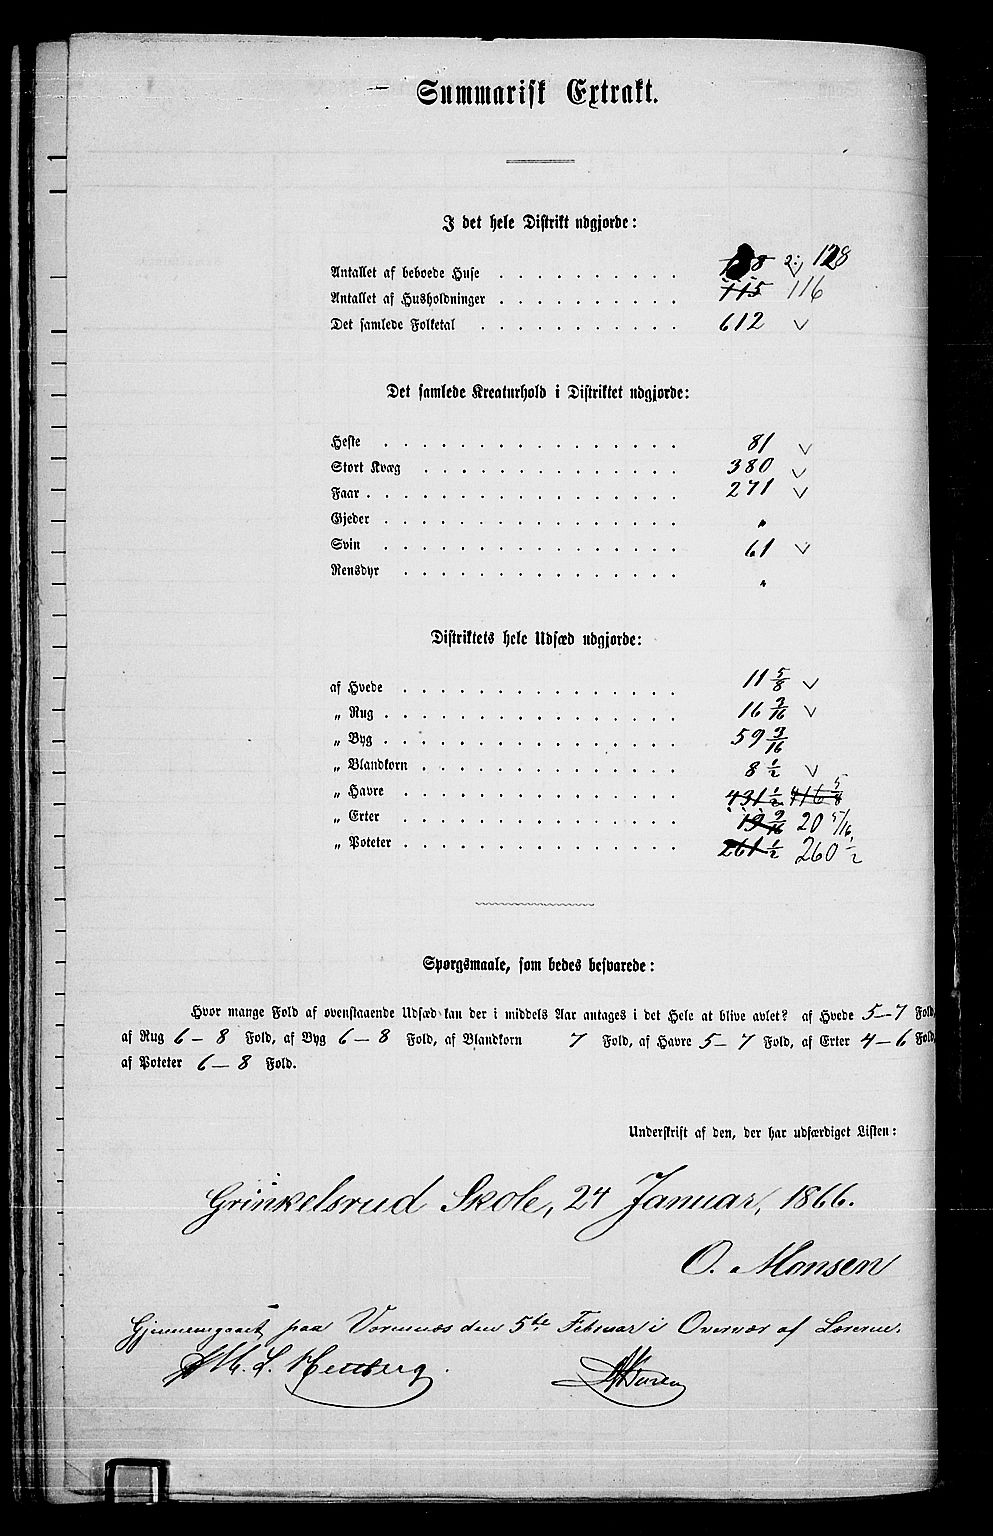 Summarisk Extrakt.
I det hele Distrikt udgjorde:
Antallet af beboede Huse . . . . . . . . . . 128
Antallet af Husholdninger . . . . . . . . . . 115 116
Det samlede Folketal . . . . . . . . . . . 612
Det samlede Kreaturhold i Distriktet udgjorde:
Heste . . . . . . . . . . . . . . . 81
Stort Kvæg . . . . . . . . . . . . . 380
Faar . . . . . . . . . . . . . . . . 271
Gjeder . . . . . . . . . . . . . . . "
Svin . . . . . . . . . . . . . . . 61
Rensdyr . . . . . . . . . . . . . . "
Distriktets hele Udsæd udgjorde:
af Hvede . . . . . . . . . . . . . . 11 5/8
„ Rug . . . . . . . . . . . . . . . 16 9/16
„ Byg . . . . . . . . . . . . . . . 59 3/16
„ Blandkorn . . . . . . . . . . . . . 8 1/2
„ Havre . . . . . . . . . . . . . . 431 1/2 416 5/8
„ Erter . . . . . . . . . . . . . . 19 9/16 20 5/16
„ Poteter . . . . . . . . . . . . . . 261 1/2 260 1/2
Spørgsmaale, som bedes besvarede:
Hvor mange Fold af ovenstaaende Udsæd kan der i middels Aar antages i det Hele at blive avlet? af Hvede 5–7 Fold,
af Rug 6–8 Fold, af Byg 6–8 Fold, af Blandkorn 7 Fold, af Havre 5–7 Fold, af Erter 4–6 Fold,
af Poteter 6–8 Fold.
Underskrift af den, der har udfærdiget Listen:
Grinkelsrud Skole, 24 Januar, 1866.
O. Monsen
Gjennemgaaet paa Vormnæs den 5te Februar i Overvær af Lærerne.